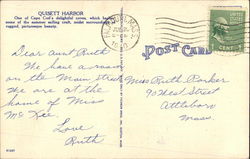 QUISETT HARBOR
One of Cape Cod's delightful coves, which harbors
some of the summer sailing craft, under surroundings of
rugged, picturesque beauty.
POST CARD
Dear Aunt Ruth
We have a room
on the Main Street
We are at the
home of Miss
Mc Kee
Love
Ruth
Miss Ruth Parker
90 West Street
Attleboro
Mass.